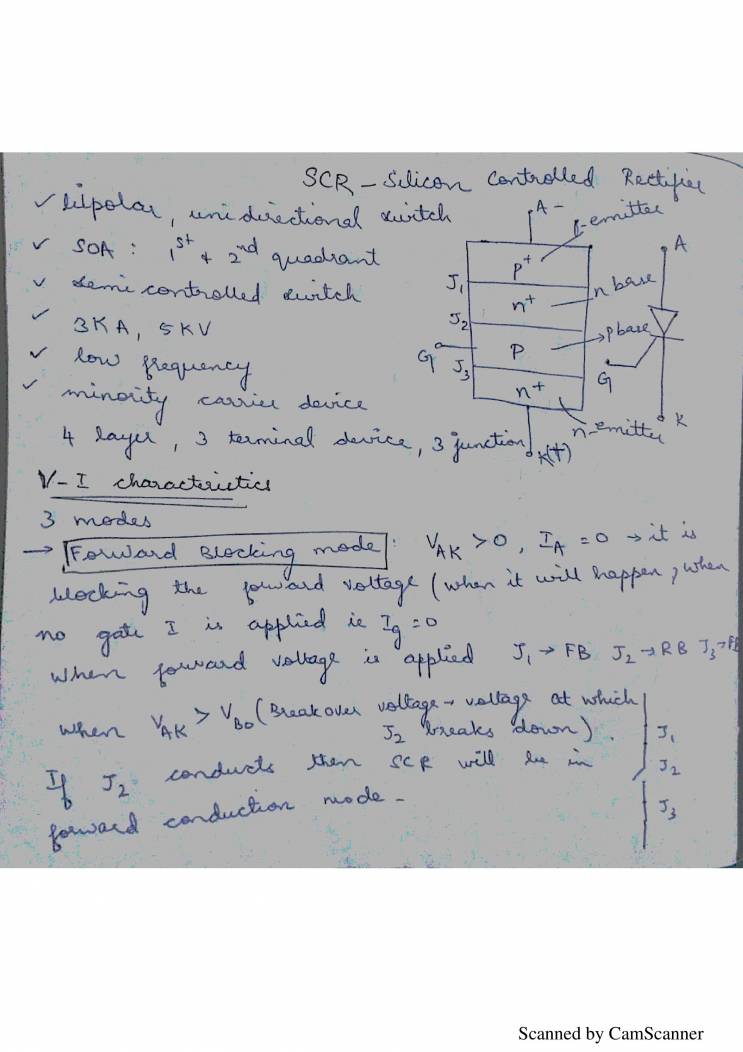 SCR - Silicon Controlled Rectifier
✓ bipolar, unidirectional switch
✓ SOA : 1st + 2nd quadrant
✓ semi controlled switch
✓ 3KA, 5KV
✓ low frequency
✓ minority carrier device
4 layer, 3 terminal device, 3 junction
A -
p-emitter
J1
p+
n+
n base
J2
G
P
pbase
J3
n+
n-emitter
K(+)
A
G
K
V-I characteristics
3 modes
→ Forward Blocking mode : VAK > 0, IA = 0 → it is
blocking the forward voltage (when it will happen, when
no gate I is applied ie Ig = 0
when forward voltage is applied J1 → FB J2 → RB J3 → FB
when VAK > VBO (Breakover voltage → voltage at which
J2 breaks down).
If J2 conducts then SCR will be in
forward conduction mode -
J1
J2
J3
Scanned by CamScanner